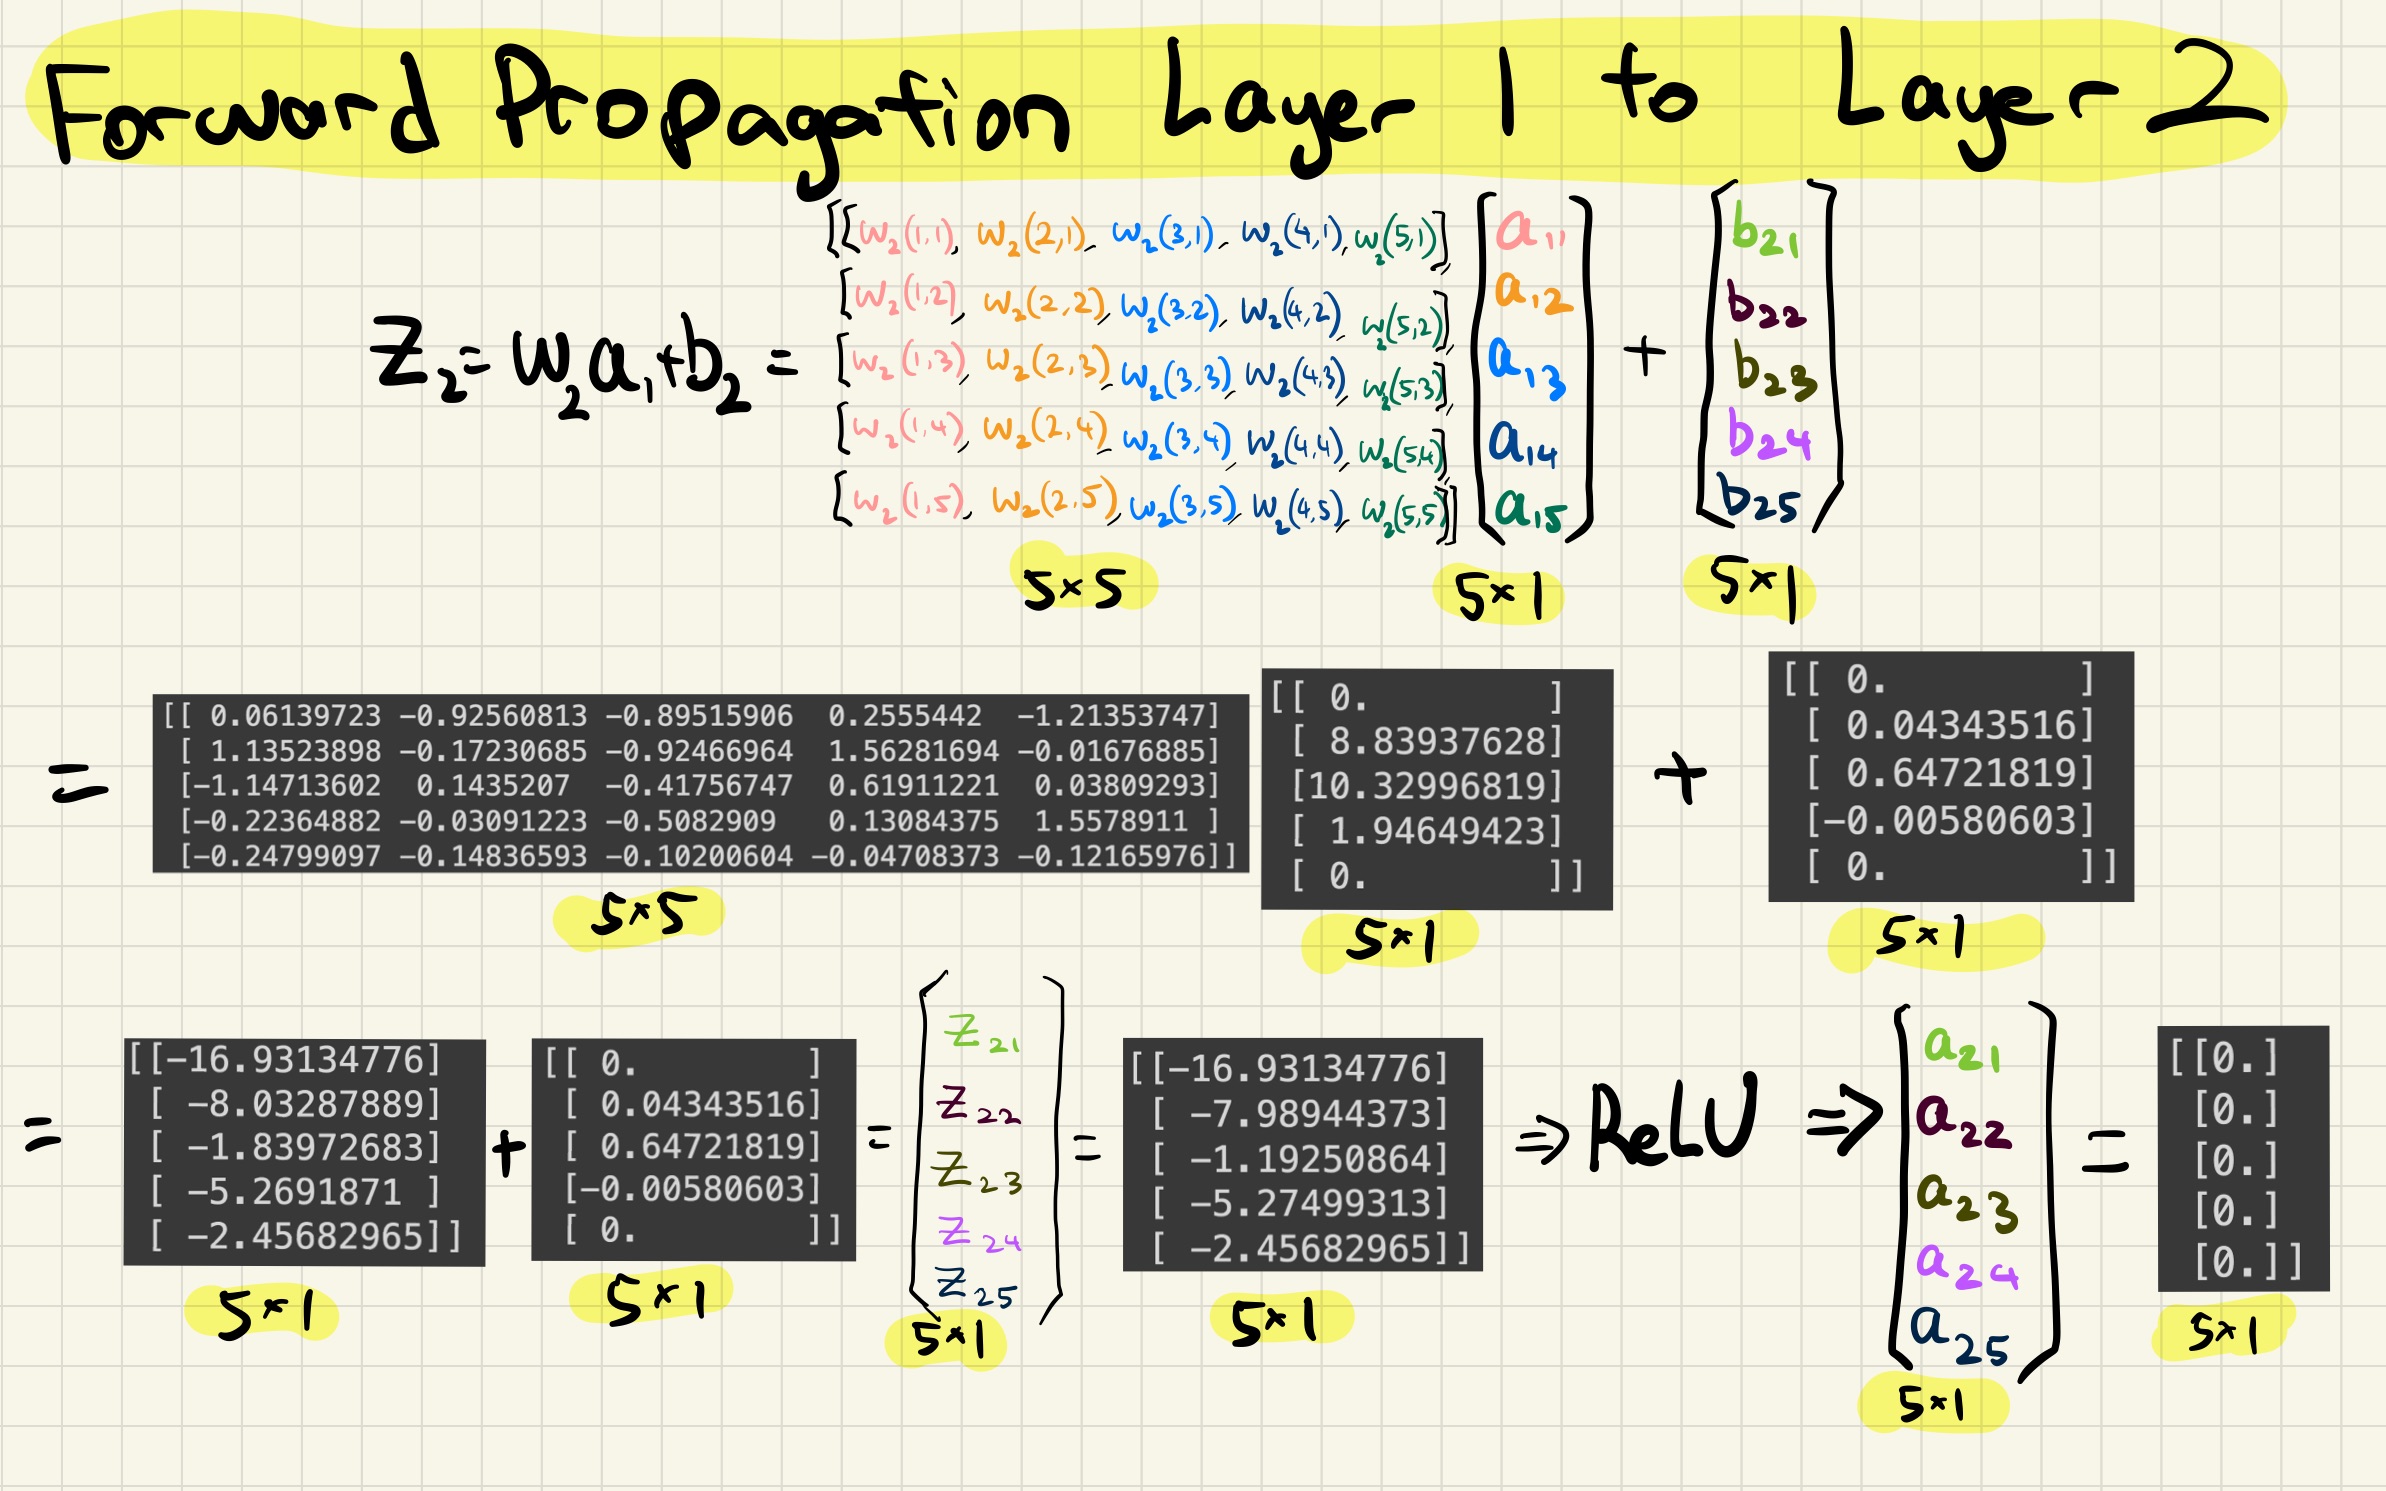 Forward Propagation Layer 1 to Layer 2
Z₂ = W₂a₁+b₂ =
[[w₂(1,1), w₂(2,1), w₂(3,1), w₂(4,1), w₂(5,1)],
[w₂(1,2), w₂(2,2), w₂(3,2), w₂(4,2), w₂(5,2)],
[w₂(1,3), w₂(2,3), w₂(3,3), w₂(4,3), w₂(5,3)],
[w₂(1,4), w₂(2,4), w₂(3,4), w₂(4,4), w₂(5,4)],
[w₂(1,5), w₂(2,5), w₂(3,5), w₂(4,5), w₂(5,5)]]
5×5
a₁₁
a₁₂
a₁₃
a₁₄
a₁₅
5×1
+
b₂₁
b₂₂
b₂₃
b₂₄
b₂₅
5×1
=
[[ 0.06139723 −0.92560813 −0.89515906 0.2555442 −1.21353747]
[ 1.13523898 −0.17230685 −0.92466964 1.56281694 −0.01676885]
[−1.14713602 0.1435207 −0.41756747 0.61911221 0.03809293]
[−0.22364882 −0.03091223 −0.5082909 0.13084375 1.5578911 ]
[−0.24799097 −0.14836593 −0.10200604 −0.04708373 −0.12165976]]
5×5
[[ 0. ]
[ 8.83937628]
[10.32996819]
[ 1.94649423]
[ 0. ]]
5×1
+
[[ 0. ]
[ 0.04343516]
[ 0.64721819]
[−0.00580603]
[ 0. ]]
5×1
=
[[−16.93134776]
[ −8.03287889]
[ −1.83972683]
[ −5.2691871 ]
[ −2.45682965]]
5×1
+
[[ 0. ]
[ 0.04343516]
[ 0.64721819]
[−0.00580603]
[ 0. ]]
5×1
=
Z₂₁
Z₂₂
Z₂₃
Z₂₄
Z₂₅
5×1
=
[[−16.93134776]
[ −7.98944373]
[ −1.19250864]
[ −5.27499313]
[ −2.45682965]]
5×1
⇒ ReLU ⇒
a₂₁
a₂₂
a₂₃
a₂₄
a₂₅
5×1
=
[[0.]
[0.]
[0.]
[0.]
[0.]]
5×1